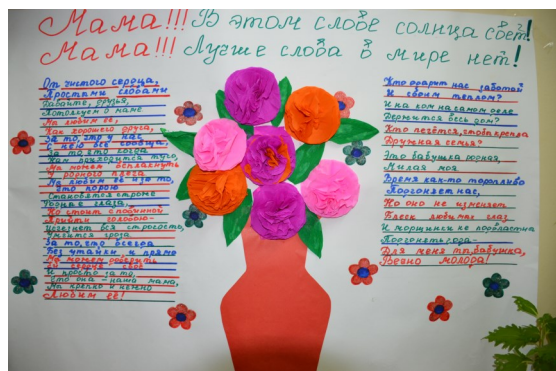 Мама!!! В этом слове солнца свет!
Мама!!! Лучше слова в мире нет!
От чистого сердца,
Простыми словами
Давайте, друзья,
Потолкуем о маме.
Мы любим её,
Как хорошего друга,
За то, что у нас
С нею всё сообща,
За то, что когда
Нам приходится туго,
Мы можем всплакнуть
У родного плеча.
Мы любим её и за то,
что порою
Становятся строже
глаза,
Но стоит с повинной
Прийти головою -
Исчезнет вся строгость,
Умчится гроза
За то, что всегда
Без утайки и прямо
Мы можем доверить
ей сердце своё
И просто за то,
Что она - наша мама,
Мы крепко и нежно
Любим её!
Кто одарит нас заботой
И своим теплом?
И на ком на самом деле
Держится весь дом?
Кто печётся, чтоб крепла
Дружная семья?
Это бабушка родная,
Милая моя
Время как-то торопливо
Подгоняет нас,
Но оно не изменяет
Блеск любимых глаз
И морщинки не подвластны
года -
Для меня ты, бабушка,
Вечно молода!